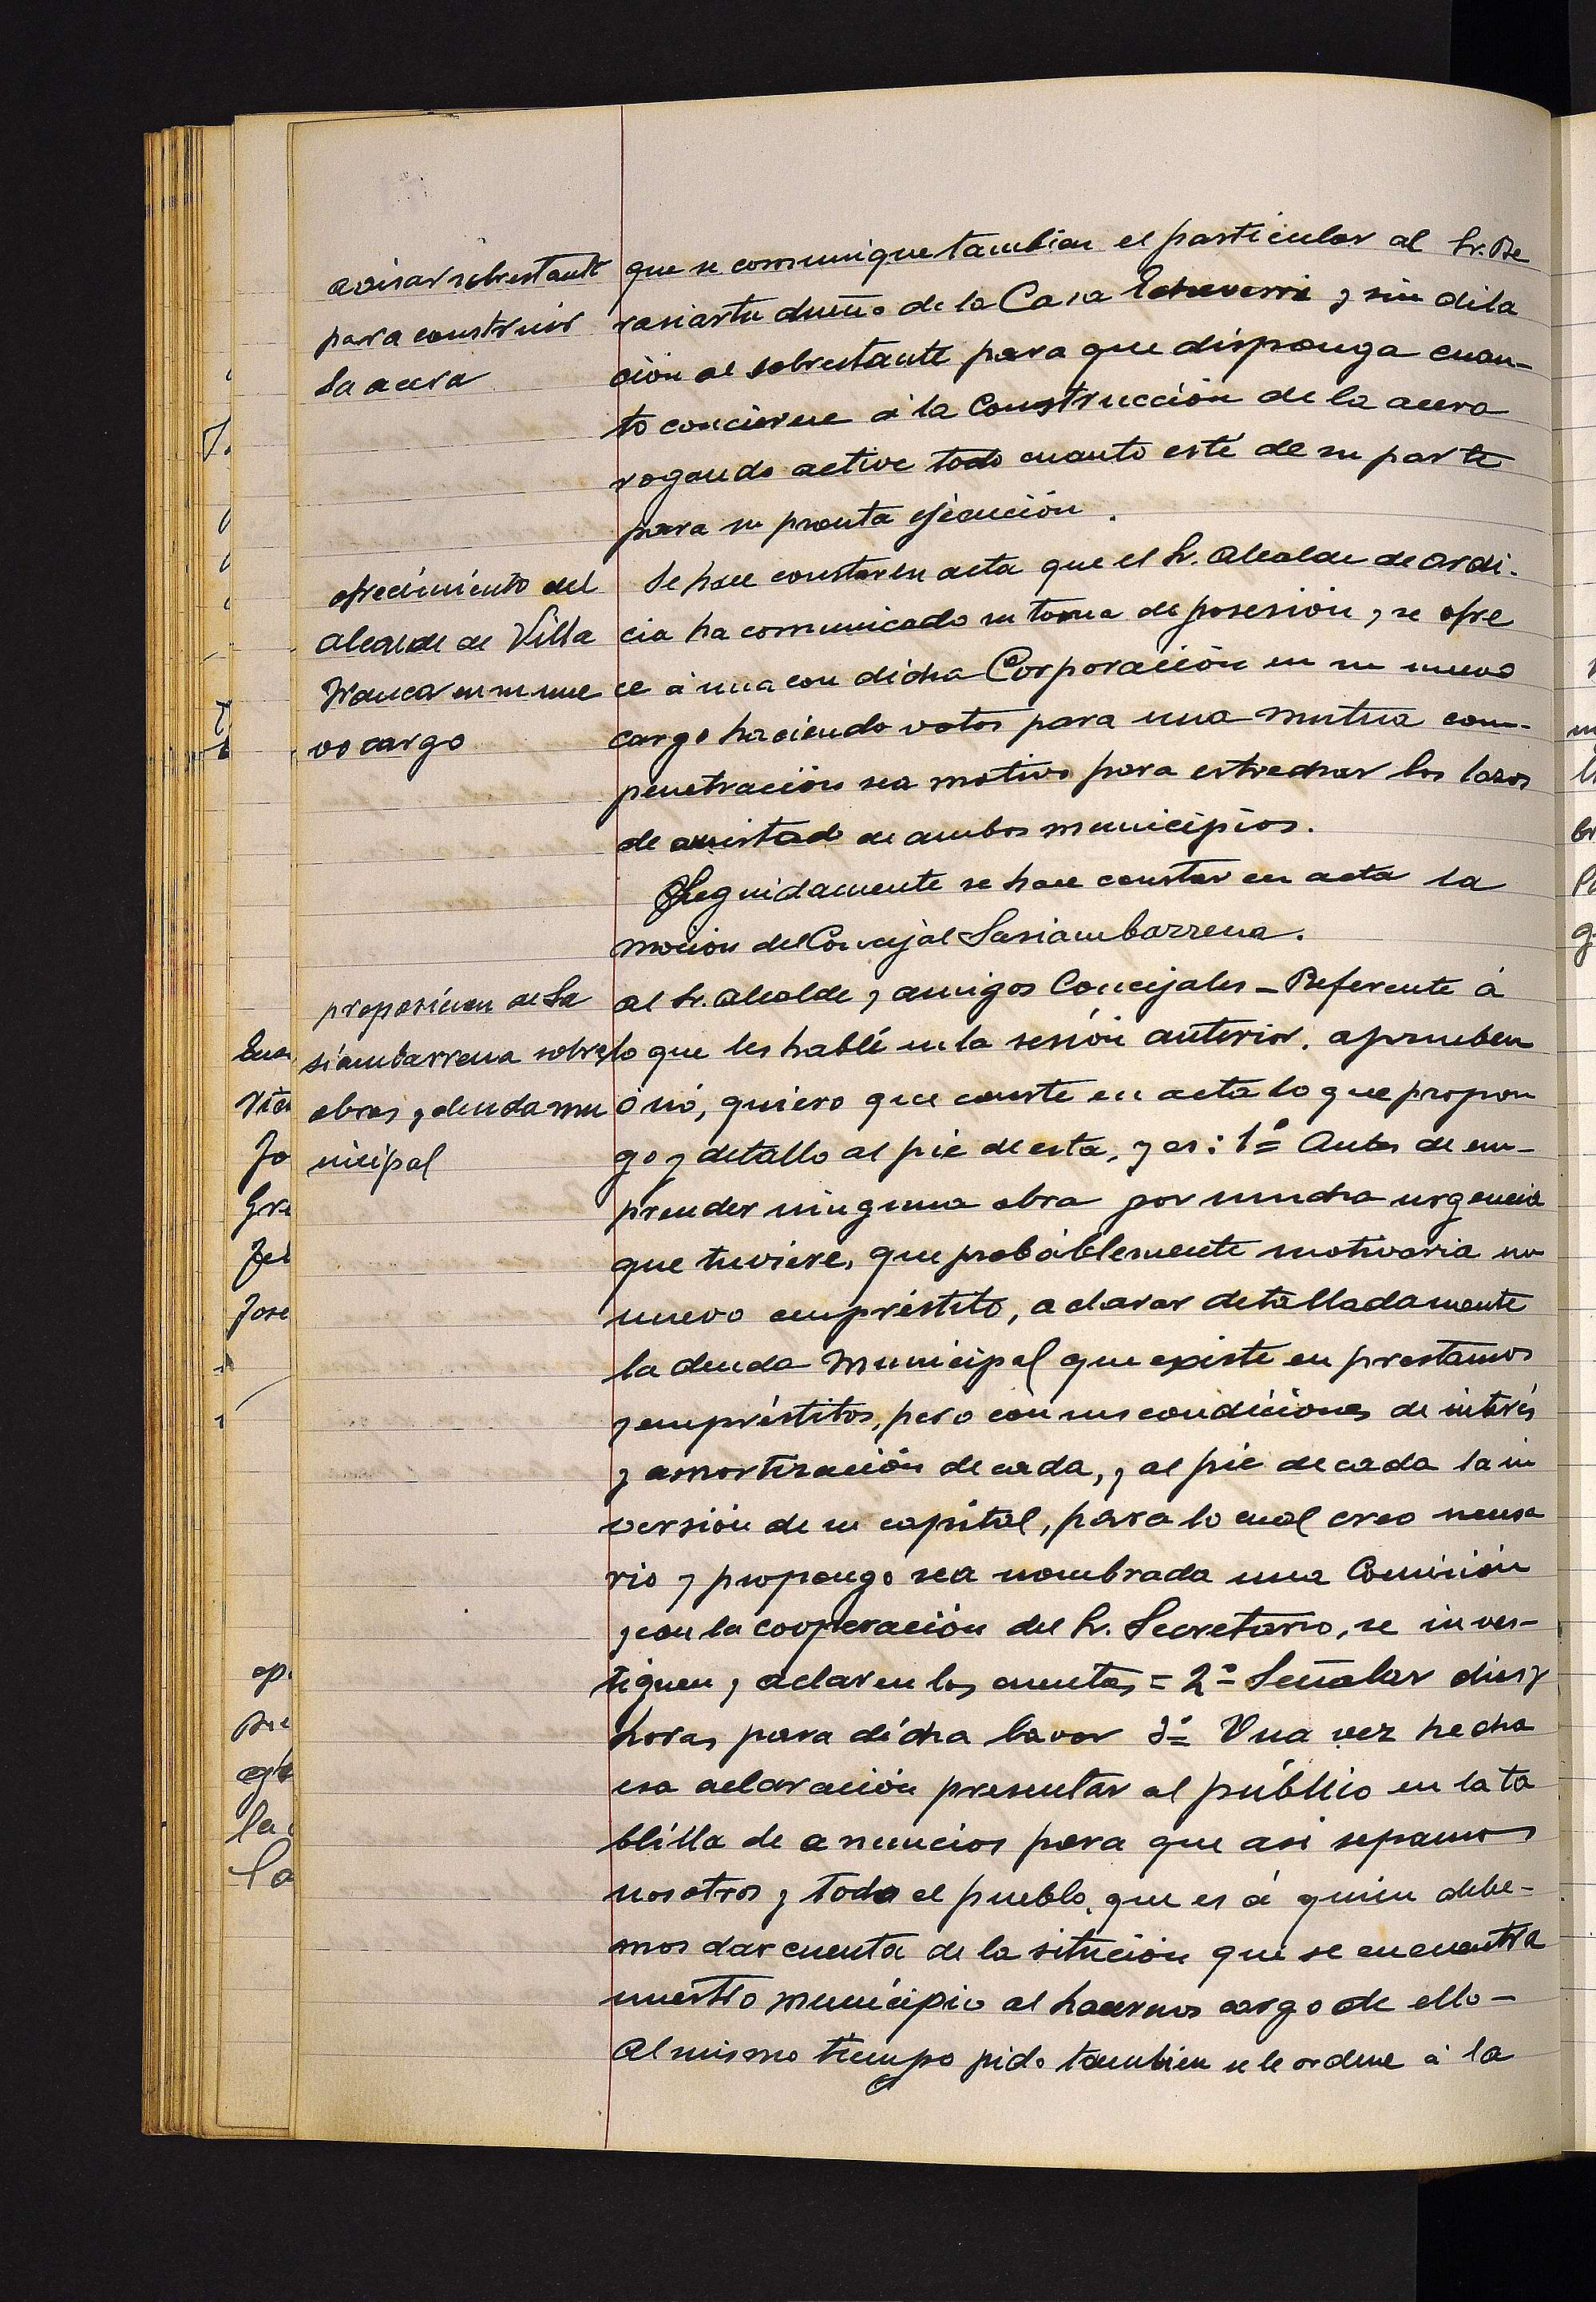 avisar sobrestante
para construir
la acera
que se comunique tambien el particular al Sr. Be
rasiartu dueño de la Casa Echeverri y sin dila
ción al sobrestante para que disponga cuan-
to concierne á la Construcción de la acera
rogando active todo cuanto esté de su parte
para su pronta ejecución.
ofrecimiento del
alcalde de Villa
franca en su nue
vo cargo
Se hace constar en acta que el Sr. Alcalde de Ordi-
cia ha comunicado su toma de posesión, y se ofre
ce á una con dicha Corporación en su nuevo
cargo haciendo votos para una mutua com-
penetración sea motivo para estrechar los lazos
de amistad de ambos municipios.
Seguidamente se hace constar en acta la
moción del Concejal Sasiambarrena.
proposicion de Sa
siambarrena sobre
obras y deuda mu
nicipal
al Sr. Alcalde y amigos Concejales - Referente á
lo que les hablé en la sesión anterior, aprueben
ó nó, quiero que conste en acta lo que propon
go y detallo al pie de esta, y es: 1º Antes de em-
prender ninguna obra por mucha urgencia
que tuviere, que probáblemente motivaria un
nuevo empréstito, aclarar detalladamente
la deuda Municipal que existe en prestamos
y empréstitos, pero con sus condiciones de interés
y amortización de cada, y al pie de cada la in
versión de su capital, para lo cual creo necesa
rio y propongo sea nombrada una Comisión
y con la cooperación del Sr. Secretario, se inves-
tiguen y aclaren las cuentas = 2º Señalar dias y
horas para dicha lavor 3º Una vez hecha
esa aclaración presentar al público en la ta
blilla de anuncios para que asi sepamos
nosotros y todo el pueblo, que es á quien debe-
mos dar cuenta de la situción que se encuentra
nuestro municipio al hacernos cargo de ello -
Al mismo tiempo pido tambien se le ordene á la